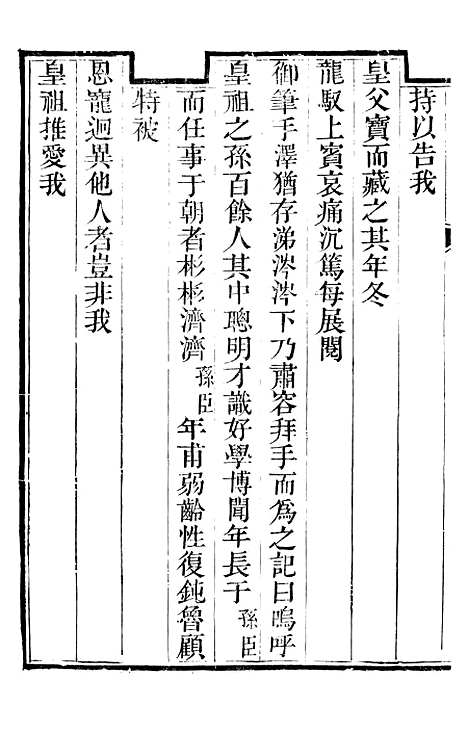 持以告我
皇父寶而藏之其年冬
龍馭上賓哀痛沉篤每展閱
御筆手澤猶存涕泞泞下乃肅容拜手而為之記曰嗚呼
皇祖之孫百餘人其中聰明才識好學博聞年長于孫臣
而任事于朝者彬彬濟濟孫臣年甫弱齡性復鈍魯顧
特被
恩寵迥異他人者豈非我
皇祖推愛我